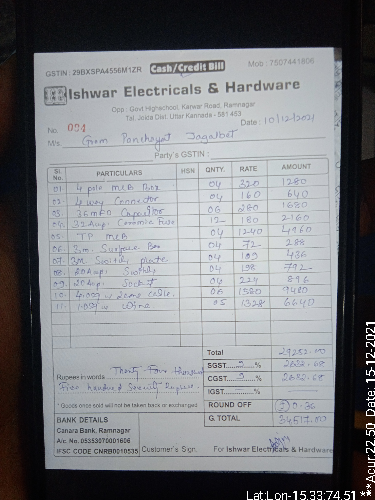 GSTIN : 29BXSPA4556M1ZR Cash/Credit Bill Mob : 7507441806
Ishwar Electricals & Hardware
Opp : Govt Highschool, Karwar Road, Ramnagar
Tal. Joida Dist. Uttar Kannada - 581 453
No. 094 Date : 10/12/2021
M/s Gram Panchayat Jagalbet
Party's GSTIN :
Sl. No. PARTICULARS HSN QNTY. RATE AMOUNT
01 4 pole MCB Box 04 320 1280
02 4 way Connector 04 160 640
03 36 MFD Capacitor 06 280 1680
04 32 Amp Ceramic Fuse 12 180 2160
05 TP MCB 04 1240 4960
06 3m Surface Box 04 72 288
07 3M Switch plate 04 109 436
08 20 Amp Switch 04 198 792
09 20 Amp Socket 04 224 896
10 06 1580 9480
11 wire 05 1328 6640
Total 29252-00
SGST 9 % 2632-68
Rupees in words Thirty Four thousand CGST 9 % 2632-68
Five hundred Seventy Rupees IGST %
* Goods once sold will not be taken back or exchanged ROUND OFF 0-36
BANK DETAILS G. TOTAL 34517.00
Canara Bank, Ramnagar
A/c. No. 05353070001606
IFSC CODE CNRB0010535 Customer's Sign. For Ishwar Electricals & Hardware
Lat:Lon-15.33:74.51 ***Acur:22.50 Date:15-12-2021